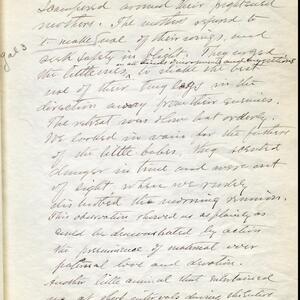 scampered around their frightened
mothers. The mothers refused to
to make use of their wings, and
gal 3
seek safety in flight. They urged
on all kinds of movements and suggestions
the little ones, to make the best
use of their tiny legs in the
direction away from their enemies.
The retreat was slow but orderly.
We looked in vain for the fathers
of the little babes, they scented
danger in time and were out
of sight when we rudely
disturbed the morning reunion.
This observation showed us as plainly as
could be demonstrated by action
the preeminence of maternal over
paternal love and devotion.
Another little animal that entertained
us at short intervals during the entire